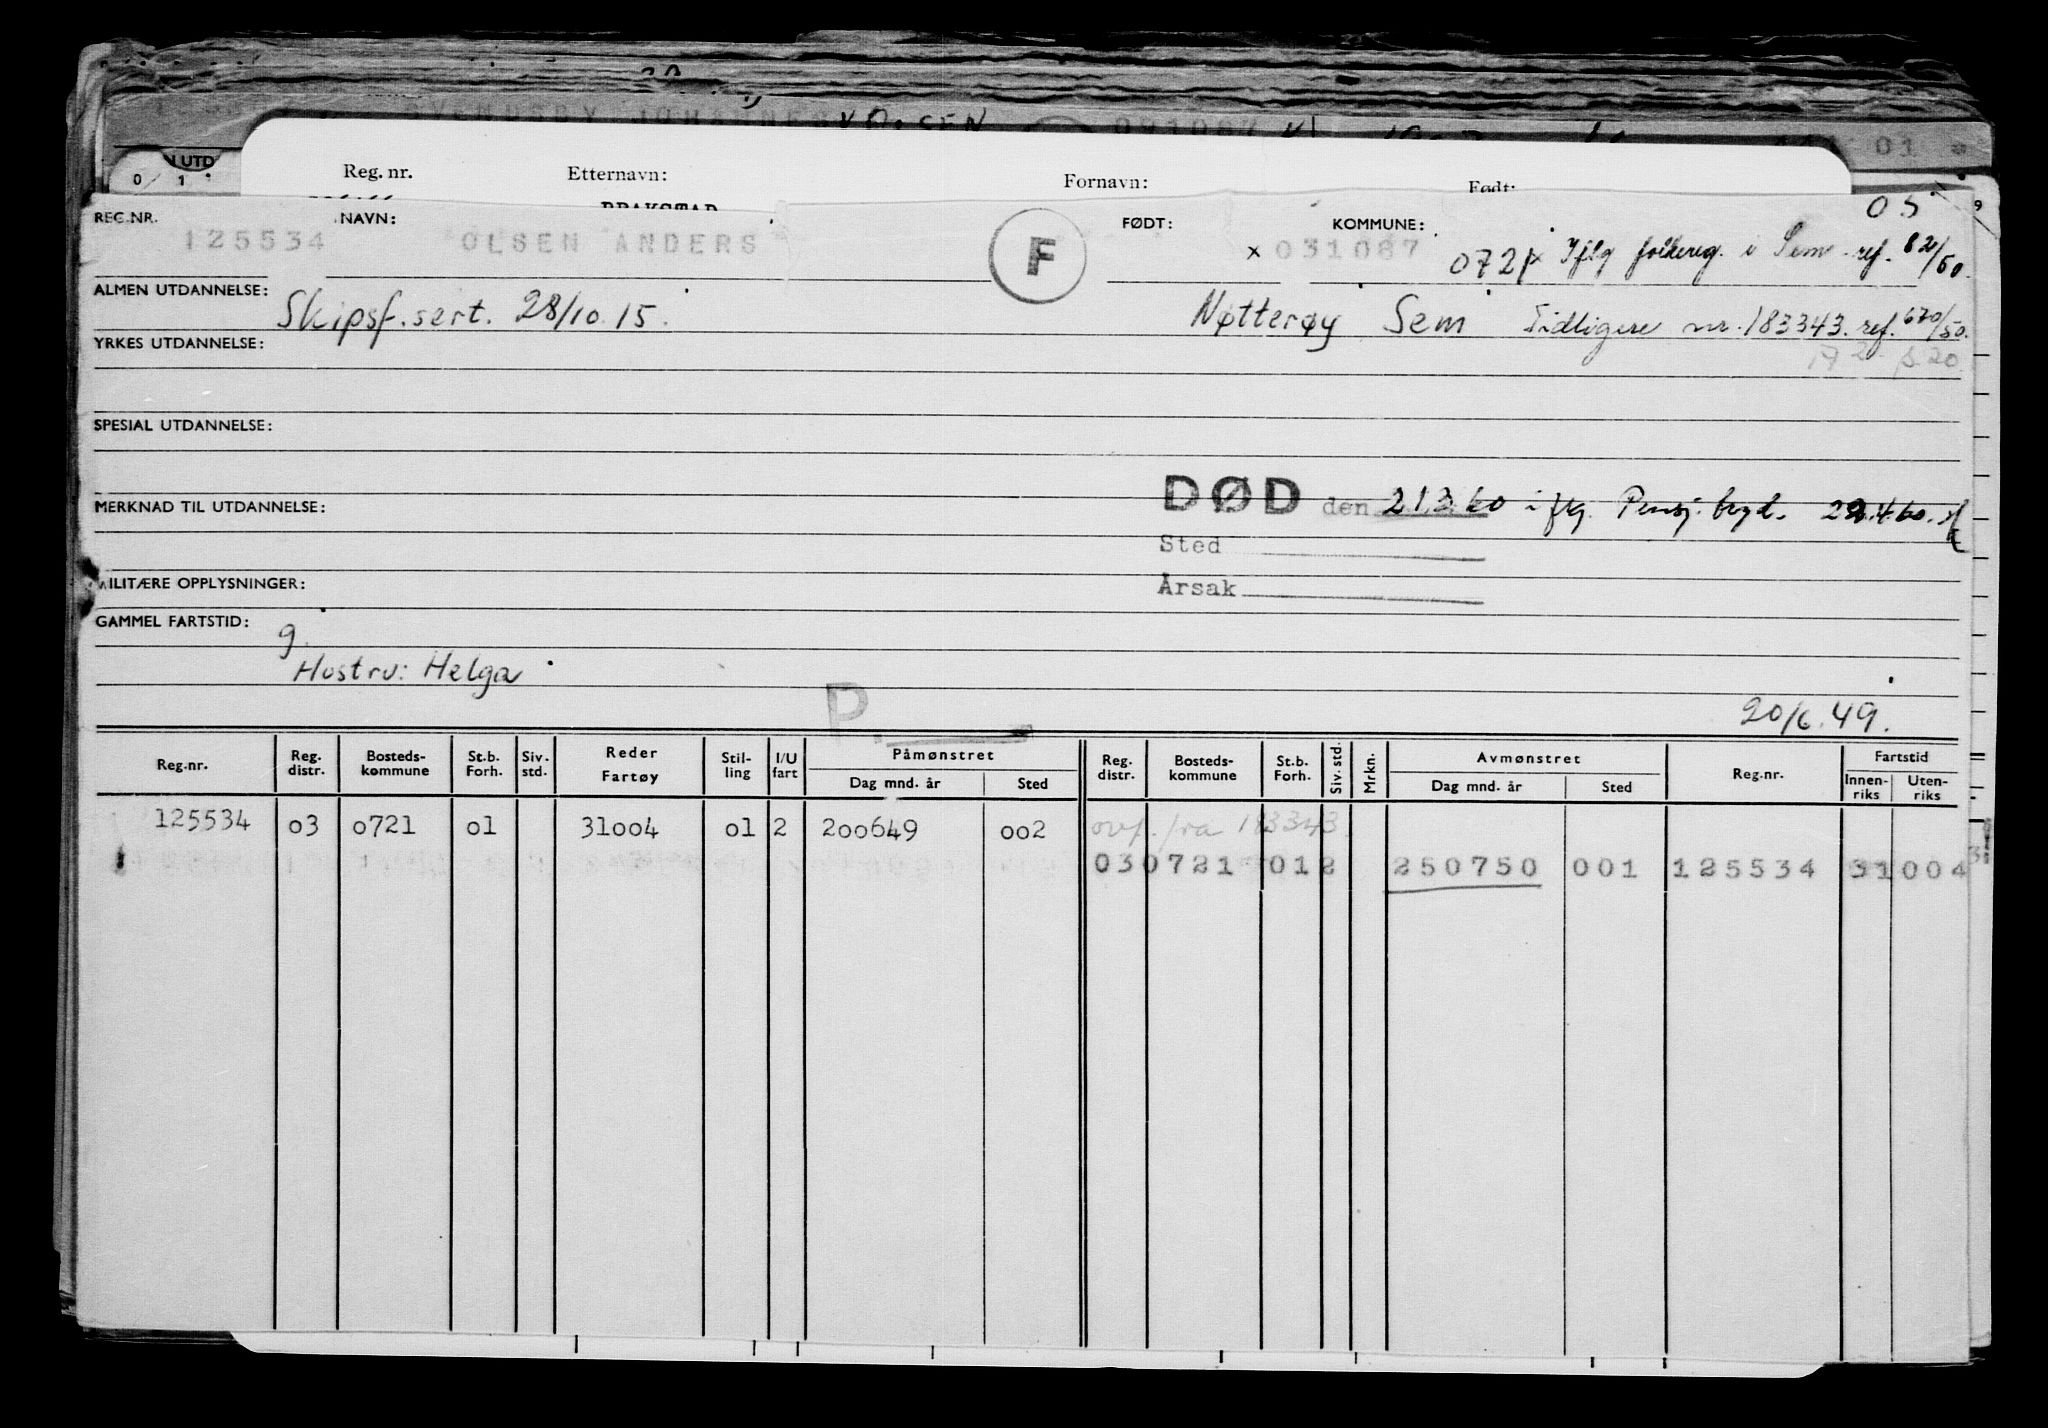 SVENDSBY JOHANNES OLSEN 091087
01
UTD
0 1
Reg. nr. Etternavn: Fornavn: Født:
BRAKSTAD
05
REG.NR. NAVN: FØDT: KOMMUNE:
125534 OLSEN ANDERS F x 031087 0721 x Iflg folkereg. i Sem ref. 82/50.
ALMEN UTDANNELSE: Skipsf. sert. 28/10.15. Nøtterøy Sem Tidligere nr. 183343. ref. 670/50.
YRKES UTDANNELSE:
SPESIAL UTDANNELSE:
DØD den 21.3.60 iflg. Pensj. tryd. 22.4.60.
MERKNAD TIL UTDANNELSE:
Sted
MILITÆRE OPPLYSNINGER: Årsak
GAMMEL FARTSTID: g.
Hustru: Helga
P.
20/6.49.
Reg.nr. Reg. distr. Bosteds-kommune St.b. Forh. Siv. std. Reder Fartøy Stil-ling I/U fart Påmønstret Dag mnd. år Sted Reg. distr. Bosteds-kommune St.b. Forh. Siv. std. Mrkn. Avmønstret Dag mnd. år Sted Reg.nr. Fartstid Innen-riks Uten-riks
125534 03 0721 01 31004 01 2 200649 002 ovf. fra 183343.
030721 012 250750 001 125534 31004